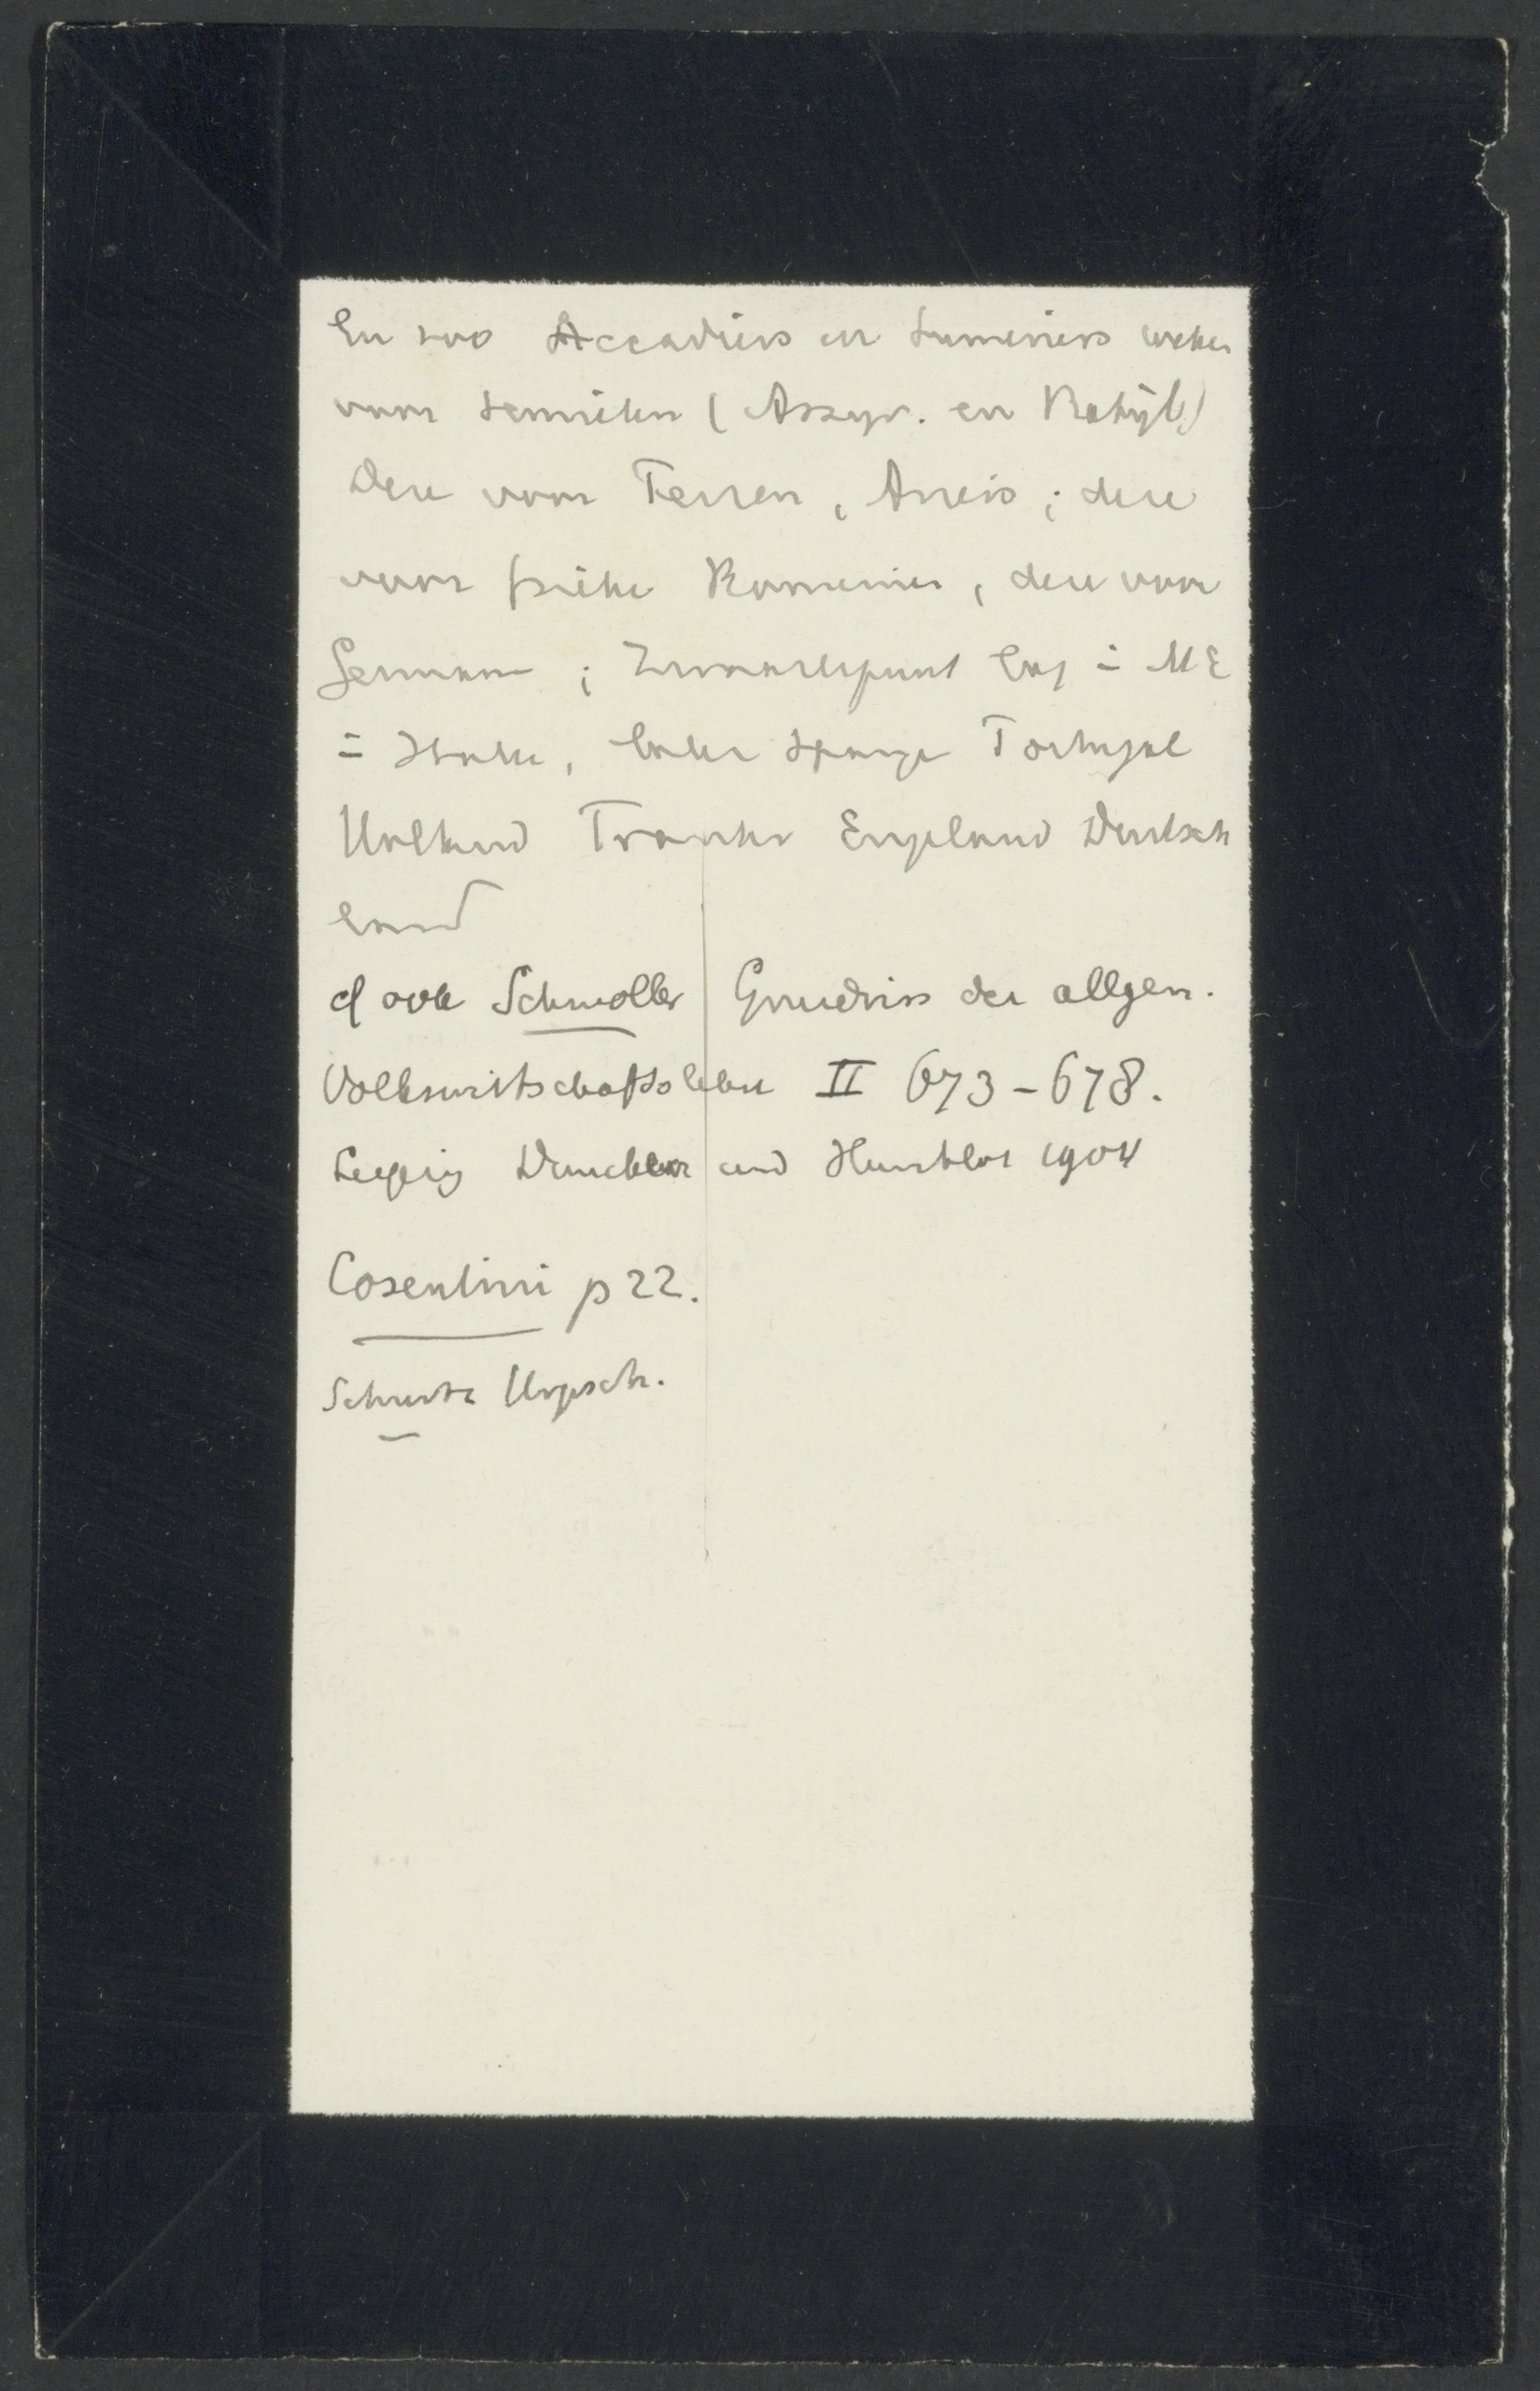 En zoo Accadiers en Sumeriers weken
voor Semiten (Assyr. en Babyl)
Deze voor Perzen, Ariers; deze
voor Grieken Romeinen, deze voor
Germanen; Zwaartepunt lag in ME
in Italie, later Spanje Portugal
Holland Frankr Engeland Deutsch
land
cf ook Schmoller Grundriss der allgem.
Volkswirtschaftslehre II 673-678.
Leipzig Duncker und Humblot 1904
Cosentini p 22.
Schurtz Urgesch.